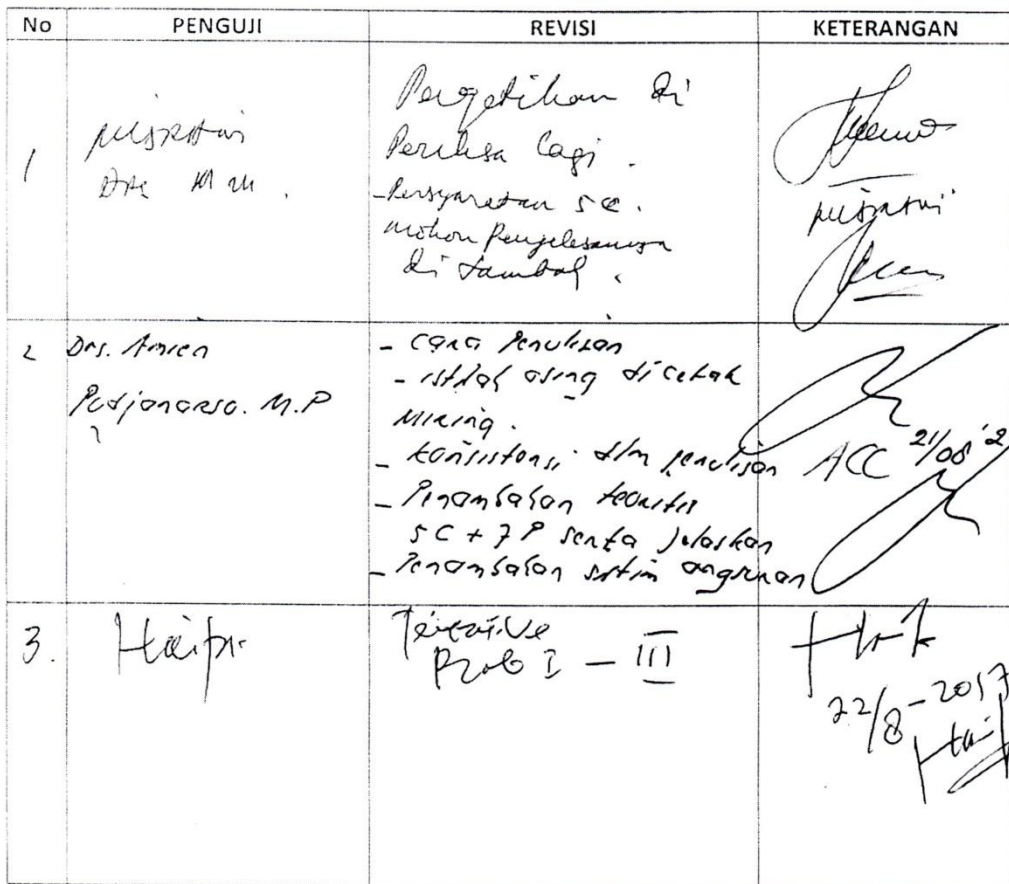 No PENGUJI REVISI KETERANGAN
1
Pengetikan di
Periksa lagi.
- Persyaratan 5C.
mohon Penjelasannya
di tambah.
2 Drs. Amien
Pudjanarso. M.P
- cara Penulisan
- istilah asing dicetak
Miring.
- Konsistensi dlm penulisan
- Penambahan teoritis
5C + 7P serta jelaskan
- Penambahan sistim angsuran
ACC 21/08
3.
I - III
22/8 - 2017